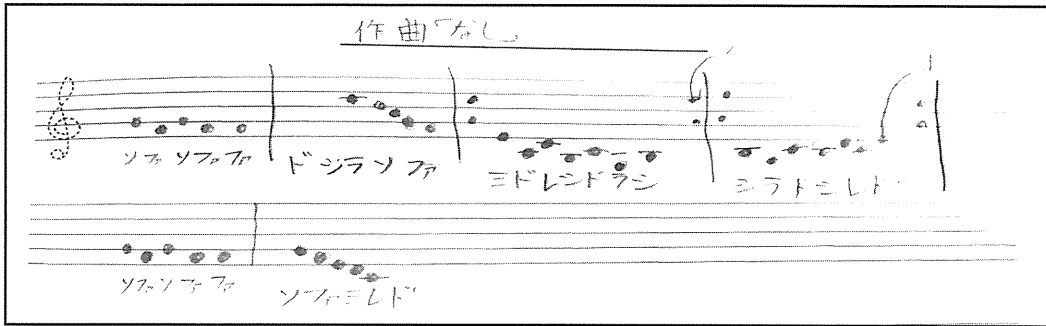 作曲「なし」
ソファソファファ ドシラソファ ミドレシドラシ シラドシレド
ソファソファファ ソファミレド